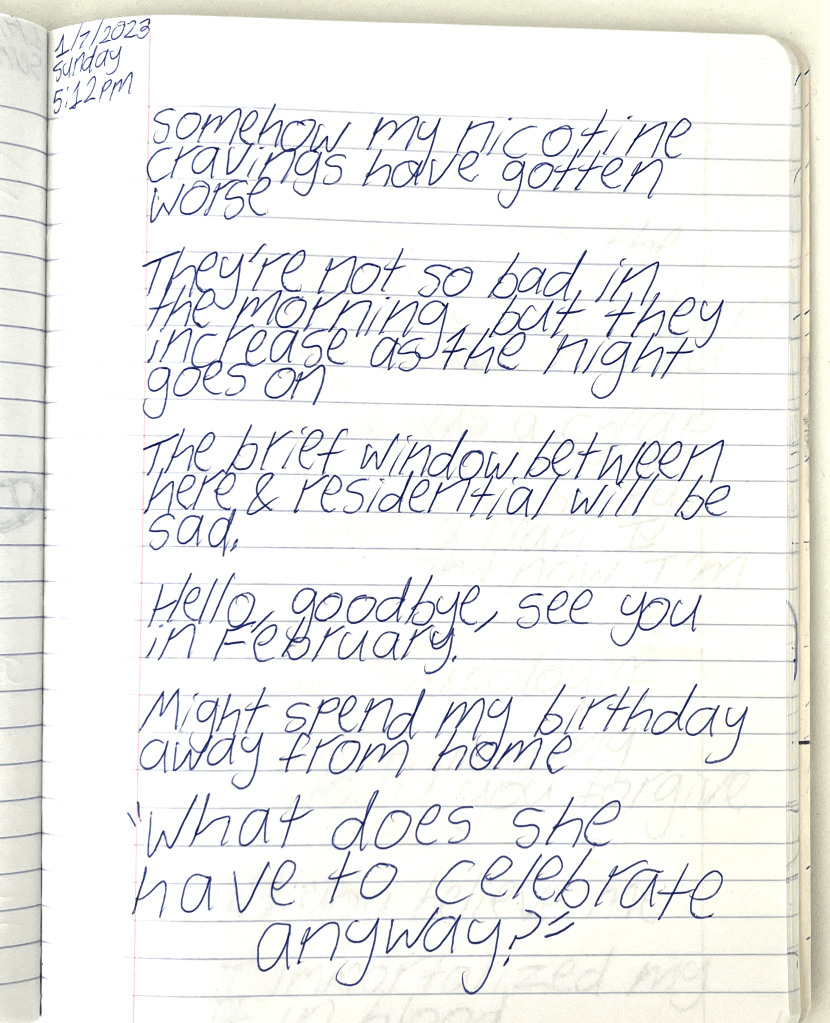 1/7/2023
sunday
5:12pm
somehow my nicotine
cravings have gotten
worse
They're not so bad in
the morning, but they
increase as the night
goes on
The brief window between
here & residential will be
sad.
Hello, goodbye, see you
in February.
Might spend my birthday
away from home
"What does she
have to celebrate
anyway?"